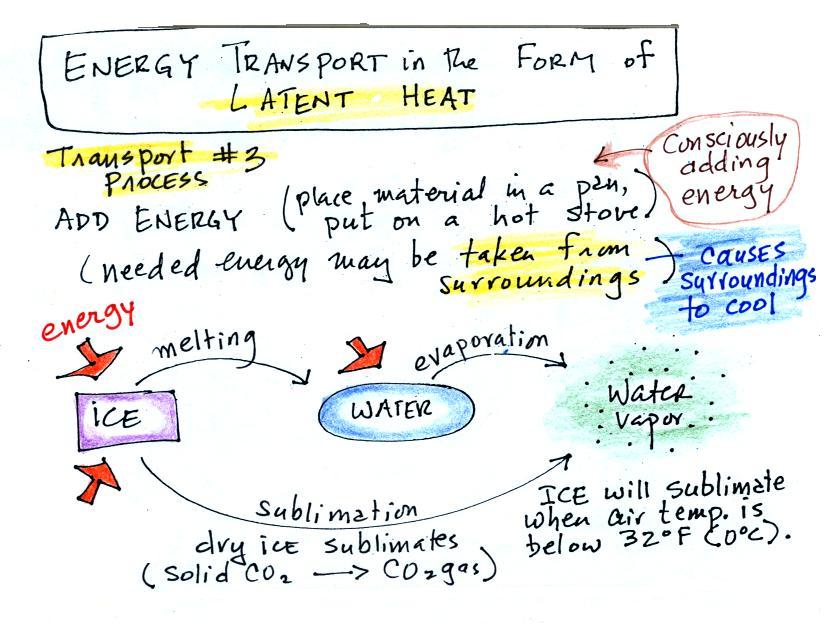 ENERGY TRANSPORT in the FORM of
LATENT HEAT
Transport #3
PROCESS
Consciously
adding
energy
ADD ENERGY (place material in a pan,
put on a hot stove)
(needed energy may be taken from
surroundings)
causes
surroundings
to cool
energy
melting
evaporation
iCE
WATER
Water
vapor
sublimation
dry ice sublimates
(solid CO2 → CO2 gas)
ICE will sublimate
when air temp. is
below 32°F (0°C).